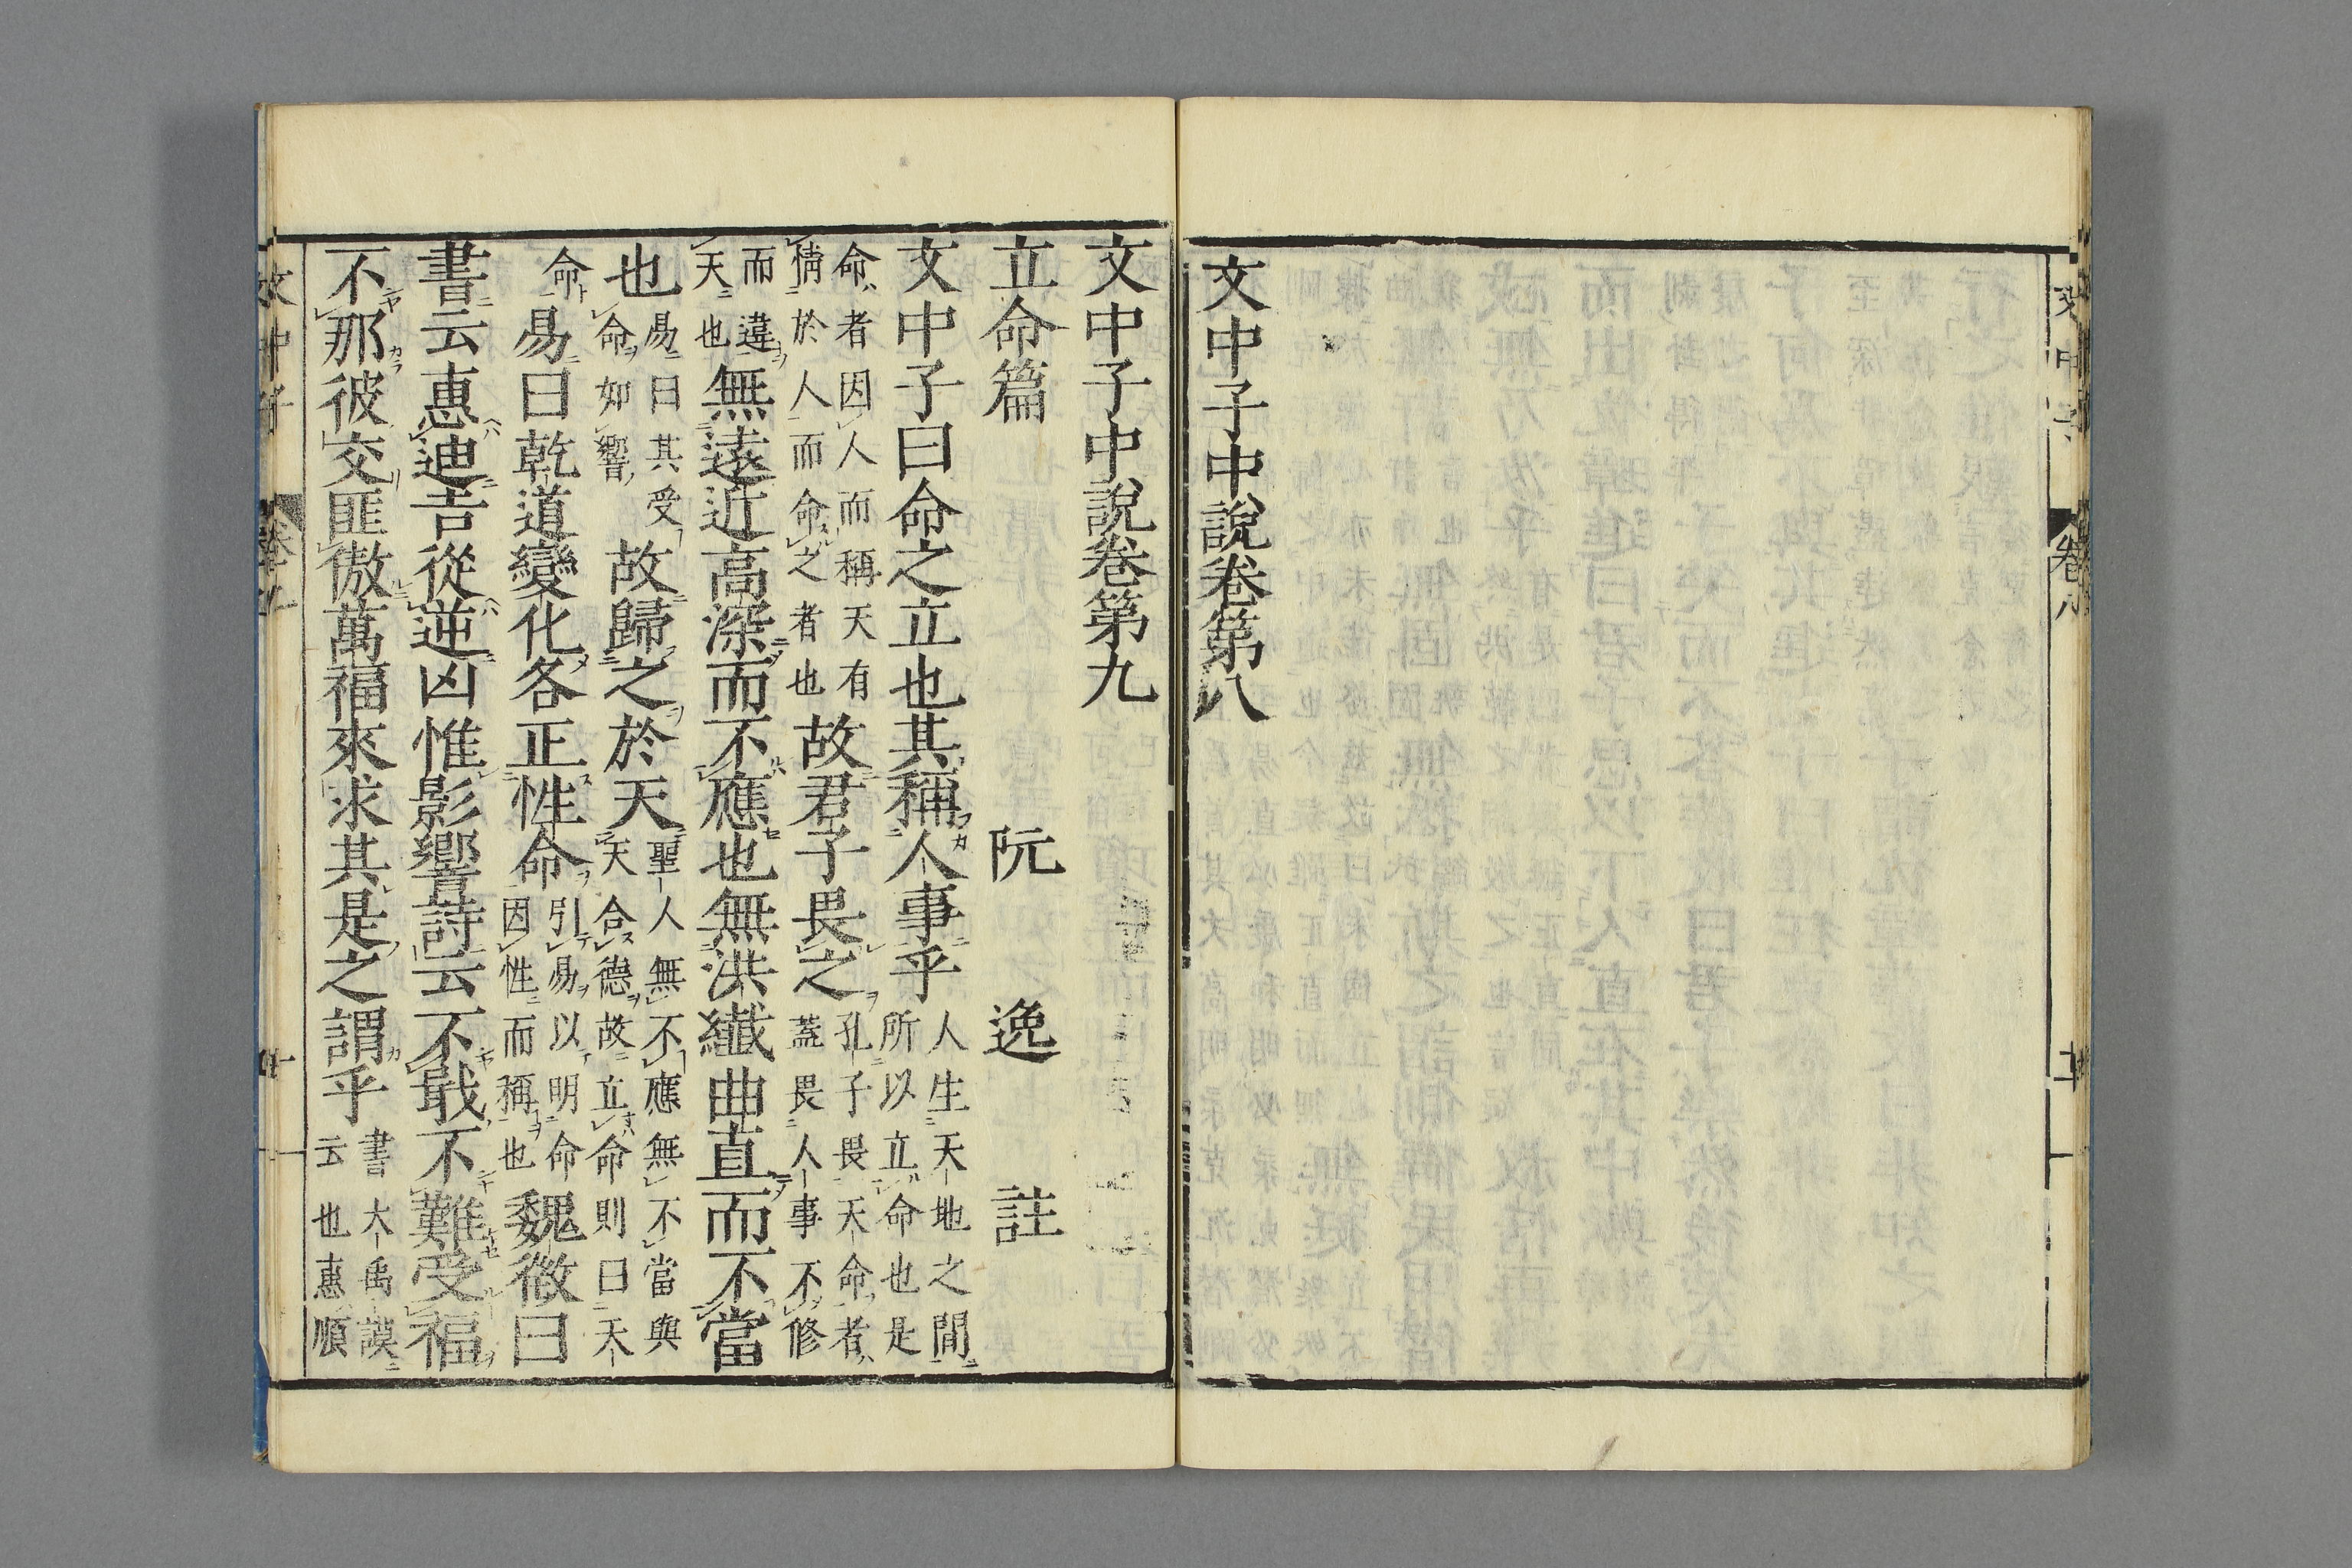 文中子中說卷第八
文中子中說卷第九
立命篇 阮逸註
文中子曰命之立也其稱人事乎人生天地之間所以立命也是
命者因人而稱天有情於人而命之者也故君子畏之孔子畏天命者蓋畏人事不修
而違天也無遠近高深而不應也無洪纖曲直而不當
也易曰其受命如響故歸之於天聖人無不應無不當與天合德故立命則曰天
命易曰乾道變化各正性命引易以明命因性而稱也魏徵曰
書云惠迪吉從逆凶惟影響詩云不戢不難受福
不那彼交匪傲萬福來求其是之謂乎書大禹謨云也惠順